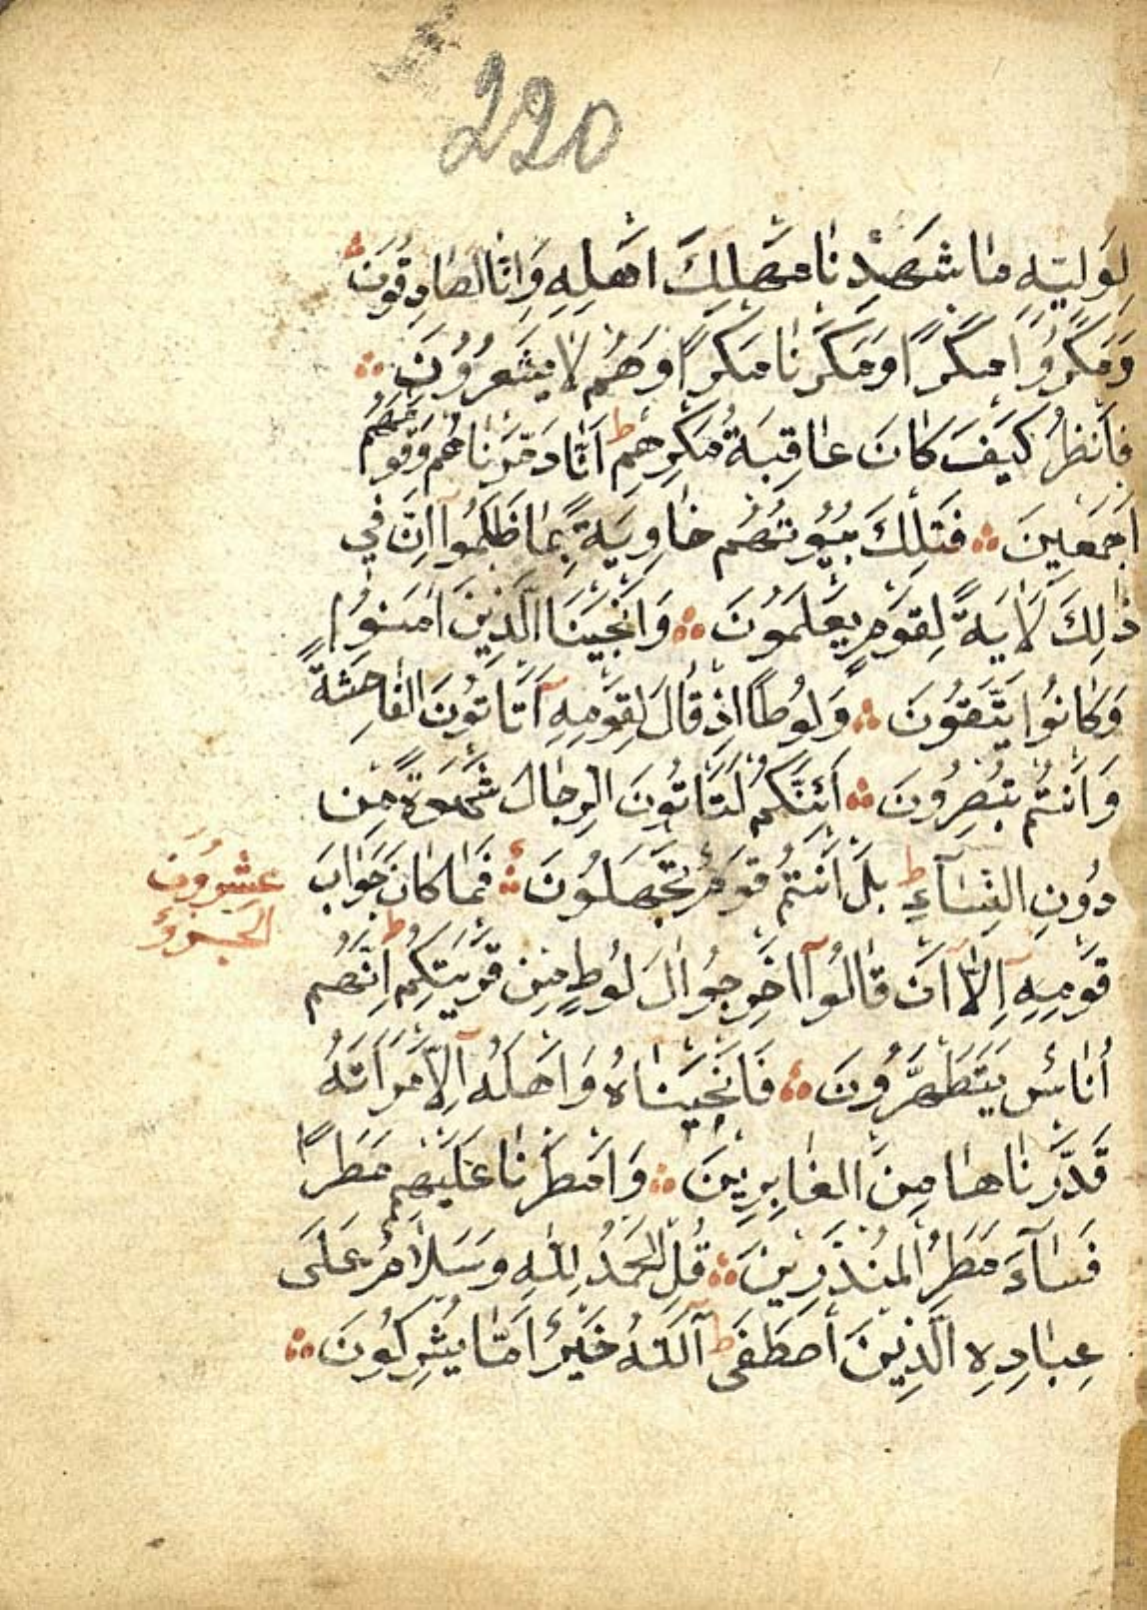 220
لِوَلِيِّهِ مَا شَهِدْنَا مَهْلِكَ اَهْلِهِ وَاِنَّا لَصَادِقُونَ
وَمَكَرُوا مَكْرًا وَمَكَرْنَا مَكْرًا وَهُمْ لَا يَشْعُرُونَ
فَانْظُرْ كَيْفَ كَانَ عَاقِبَةُ مَكْرِهِمْ ط اَنَّا دَمَّرْنَاهُمْ وَقَوْمَهُمْ
اَجْمَعِينَ فَتِلْكَ بُيُوتُهُمْ خَاوِيَةً بِمَا ظَلَمُوا اِنَّ فِي
ذٰلِكَ لَاٰيَةً لِقَوْمٍ يَعْلَمُونَ وَاَنْجَيْنَا الَّذِينَ اٰمَنُوا
وَكَانُوا يَتَّقُونَ وَلُوطًا اِذْ قَالَ لِقَوْمِهِ اَتَاْتُونَ الْفَاحِشَةَ
وَاَنْتُمْ تُبْصِرُونَ اَئِنَّكُمْ لَتَاْتُونَ الرِّجَالَ شَهْوَةً مِنْ
دُونِ النِّسَآءِ ط بَلْ اَنْتُمْ قَوْمٌ تَجْهَلُونَ فَمَا كَانَ جَوَابَ
عشرون
الجزؤ
قَوْمِهِ اِلَّا اَنْ قَالُوا اَخْرِجُوا اٰلَ لُوطٍ مِنْ قَرْيَتِكُمْ ط اِنَّهُمْ
اُنَاسٌ يَتَطَهَّرُونَ فَاَنْجَيْنَاهُ وَاَهْلَهُ اِلَّا امْرَاَتَهُ
قَدَّرْنَاهَا مِنَ الْغَابِرِينَ وَاَمْطَرْنَا عَلَيْهِمْ مَطَرًا
فَسَآءَ مَطَرُ الْمُنْذَرِينَ قُلِ الْحَمْدُ لِلّٰهِ وَسَلَامٌ عَلَى
عِبَادِهِ الَّذِينَ اصْطَفَى ط آللّٰهُ خَيْرٌ اَمَّا يُشْرِكُونَ